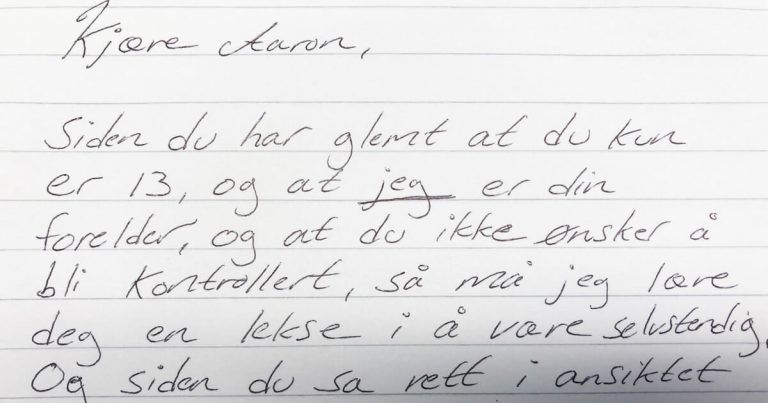 Kjære Aaron,
Siden du har glemt at du kun
er 13, og at jeg er din
forelder, og at du ikke ønsker å
bli kontrollert, så må jeg lære
deg en lekse i å være selvstendig.
Og siden du sa rett i ansiktet